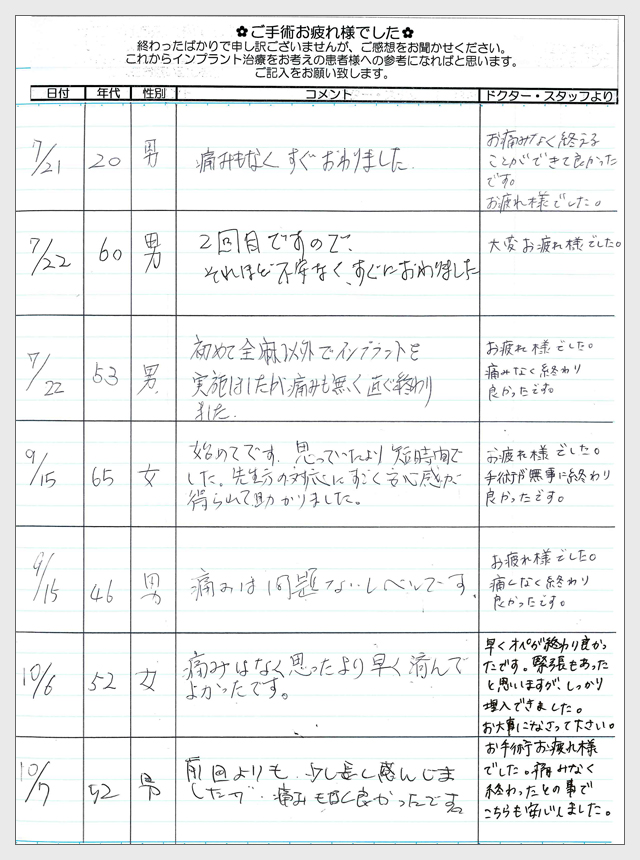 ✿ご手術お疲れ様でした✿
終わったばかりで申し訳ございませんが、ご感想をお聞かせください。
これからインプラント治療をお考えの患者様への参考になればと思います。
ご記入をお願い致します。
日付 年代 性別 コメント ドクター・スタッフより
7/21 20 男 痛みもなくすぐおわりました.
お痛みなく終える
ことができて良かった
です。
お疲れ様でした。
7/22 60 男
2回目ですので、
それほど不安なく、すぐにおわりました
大変お疲れ様でした。
7/22 53 男
初めて全麻以外でインプラントを
実施しましたが痛みも無く直ぐ終わり
ました.
お疲れ様でした。
痛みなく終わり
良かったです。
9/15 65 女
始めてです. 思っていたより短時間で
した。先生方の対応にすごく安心感が
得られて助かりました。
お疲れ様でした。
手術が無事に終わり
良かったです。
9/15 46 男 痛みは問題ないレベルです.
お疲れ様でした。
痛みなく終わり
良かったです。
10/6 52 女
痛みはなく思ったより早く済んで
よかったです。
早くオペが終わり良かっ
たです。緊張もあった
と思いますが、しっかり
埋入できました。
お大事になさって下さい。
10/7 52 男
前回よりも、少し長く感じま
したが、痛みもなく良かったです
お手術お疲れ様
でした。痛みなく
終わったとの事で
こちらも安心しました。